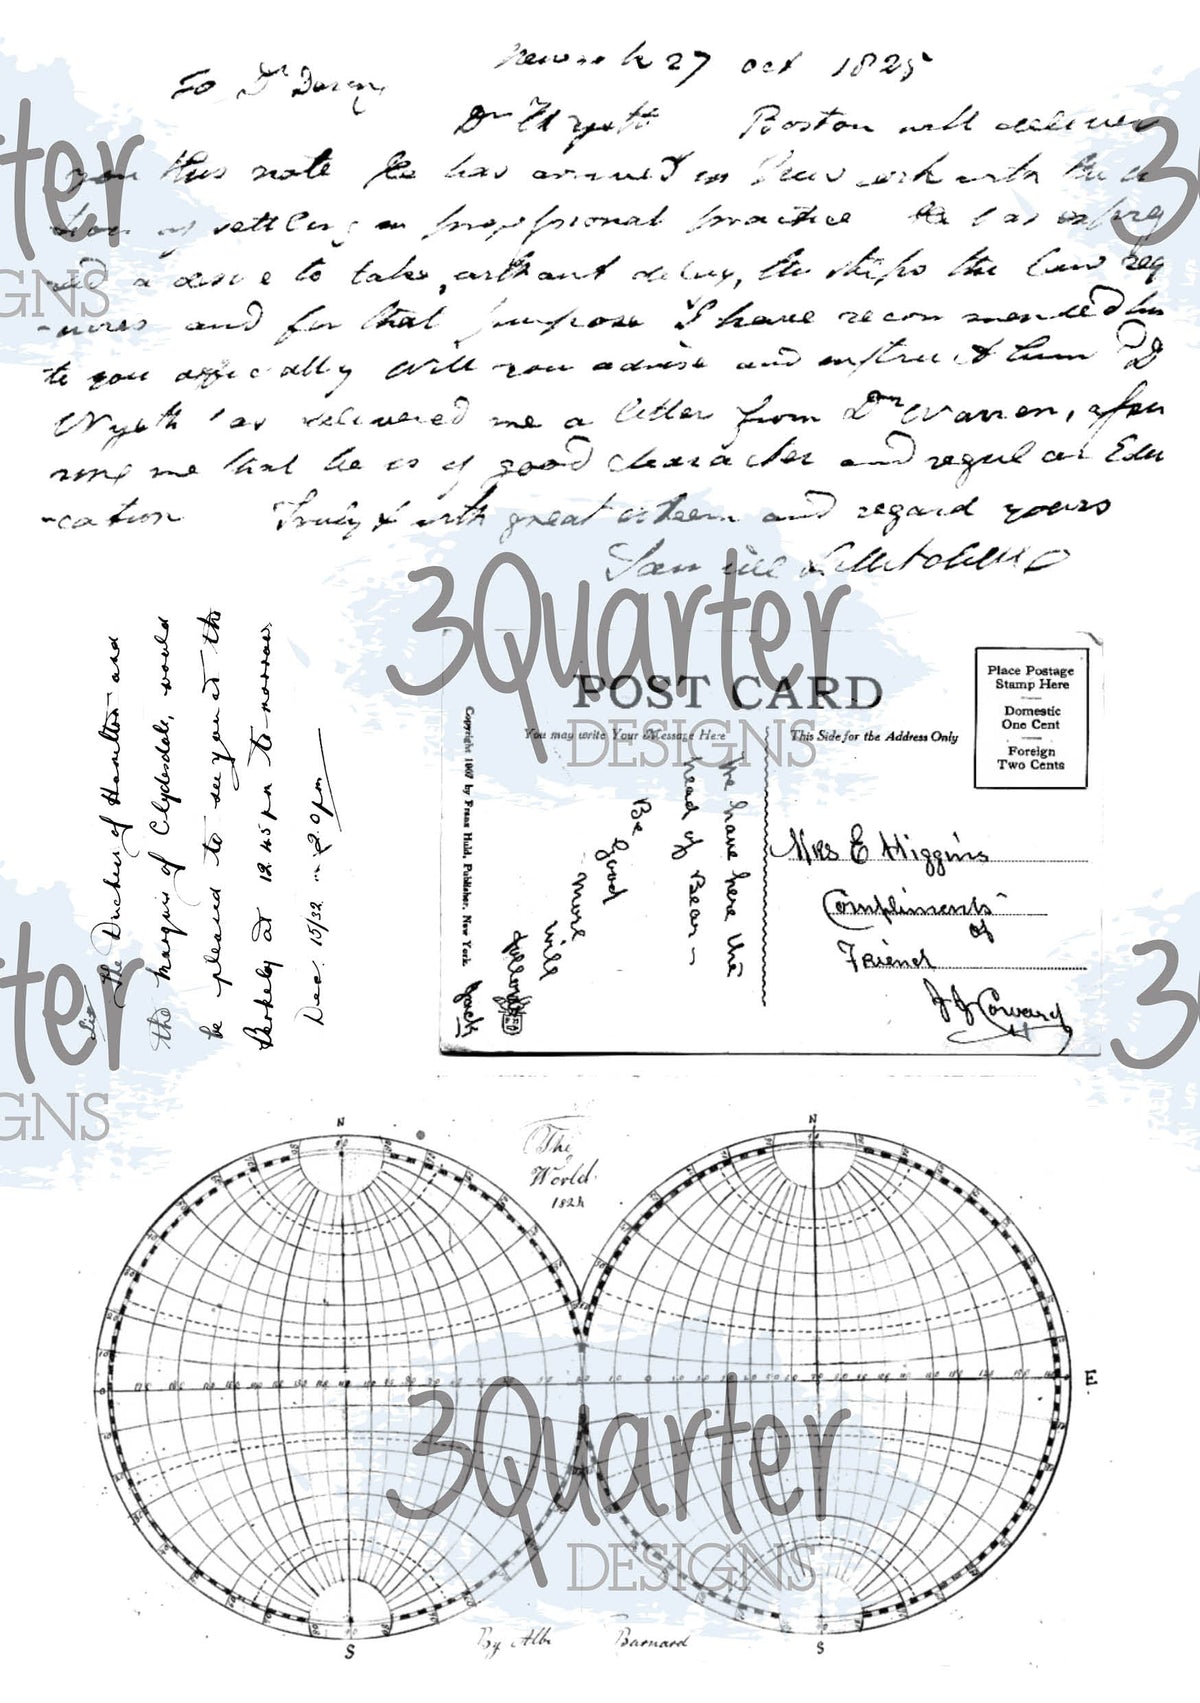 27 Oct 1825
To Dr
Dr Wyeth Boston will deliver
you this note He has arrived in New York with the
of settling in professional practice He has expres
a desire to take, without delay, the steps the Law req
-uires and for that purpose I have recommended him
to you officially Will you advise and instruct him Dr
Wyeth has delivered me a letter from Dr Warren, assu
ring me that he is of good character and regular Edu
-cation Truly & with great esteem and regard yours
The Duchess of Hamilton and
the Marquis of Clydesdale, would
be pleased to see you at the
Berkeley at 12.45 pm to-morrow
Dec. 15/32
POST CARD
You may write Your Message Here
This Side for the Address Only
Place Postage
Stamp Here
Domestic
One Cent
Foreign
Two Cents
Copyright 1907 by Franz Huld, Publisher, New York
We have here the
head of Bear
Be Good
more
will
follow
Jack
Mrs E Higgins
Compliments
of
Friend
J J Coward
The
World
182
N
N
E
S
S
By Barnard
3Quarter
DESIGNS
3Quarter
DESIGNS